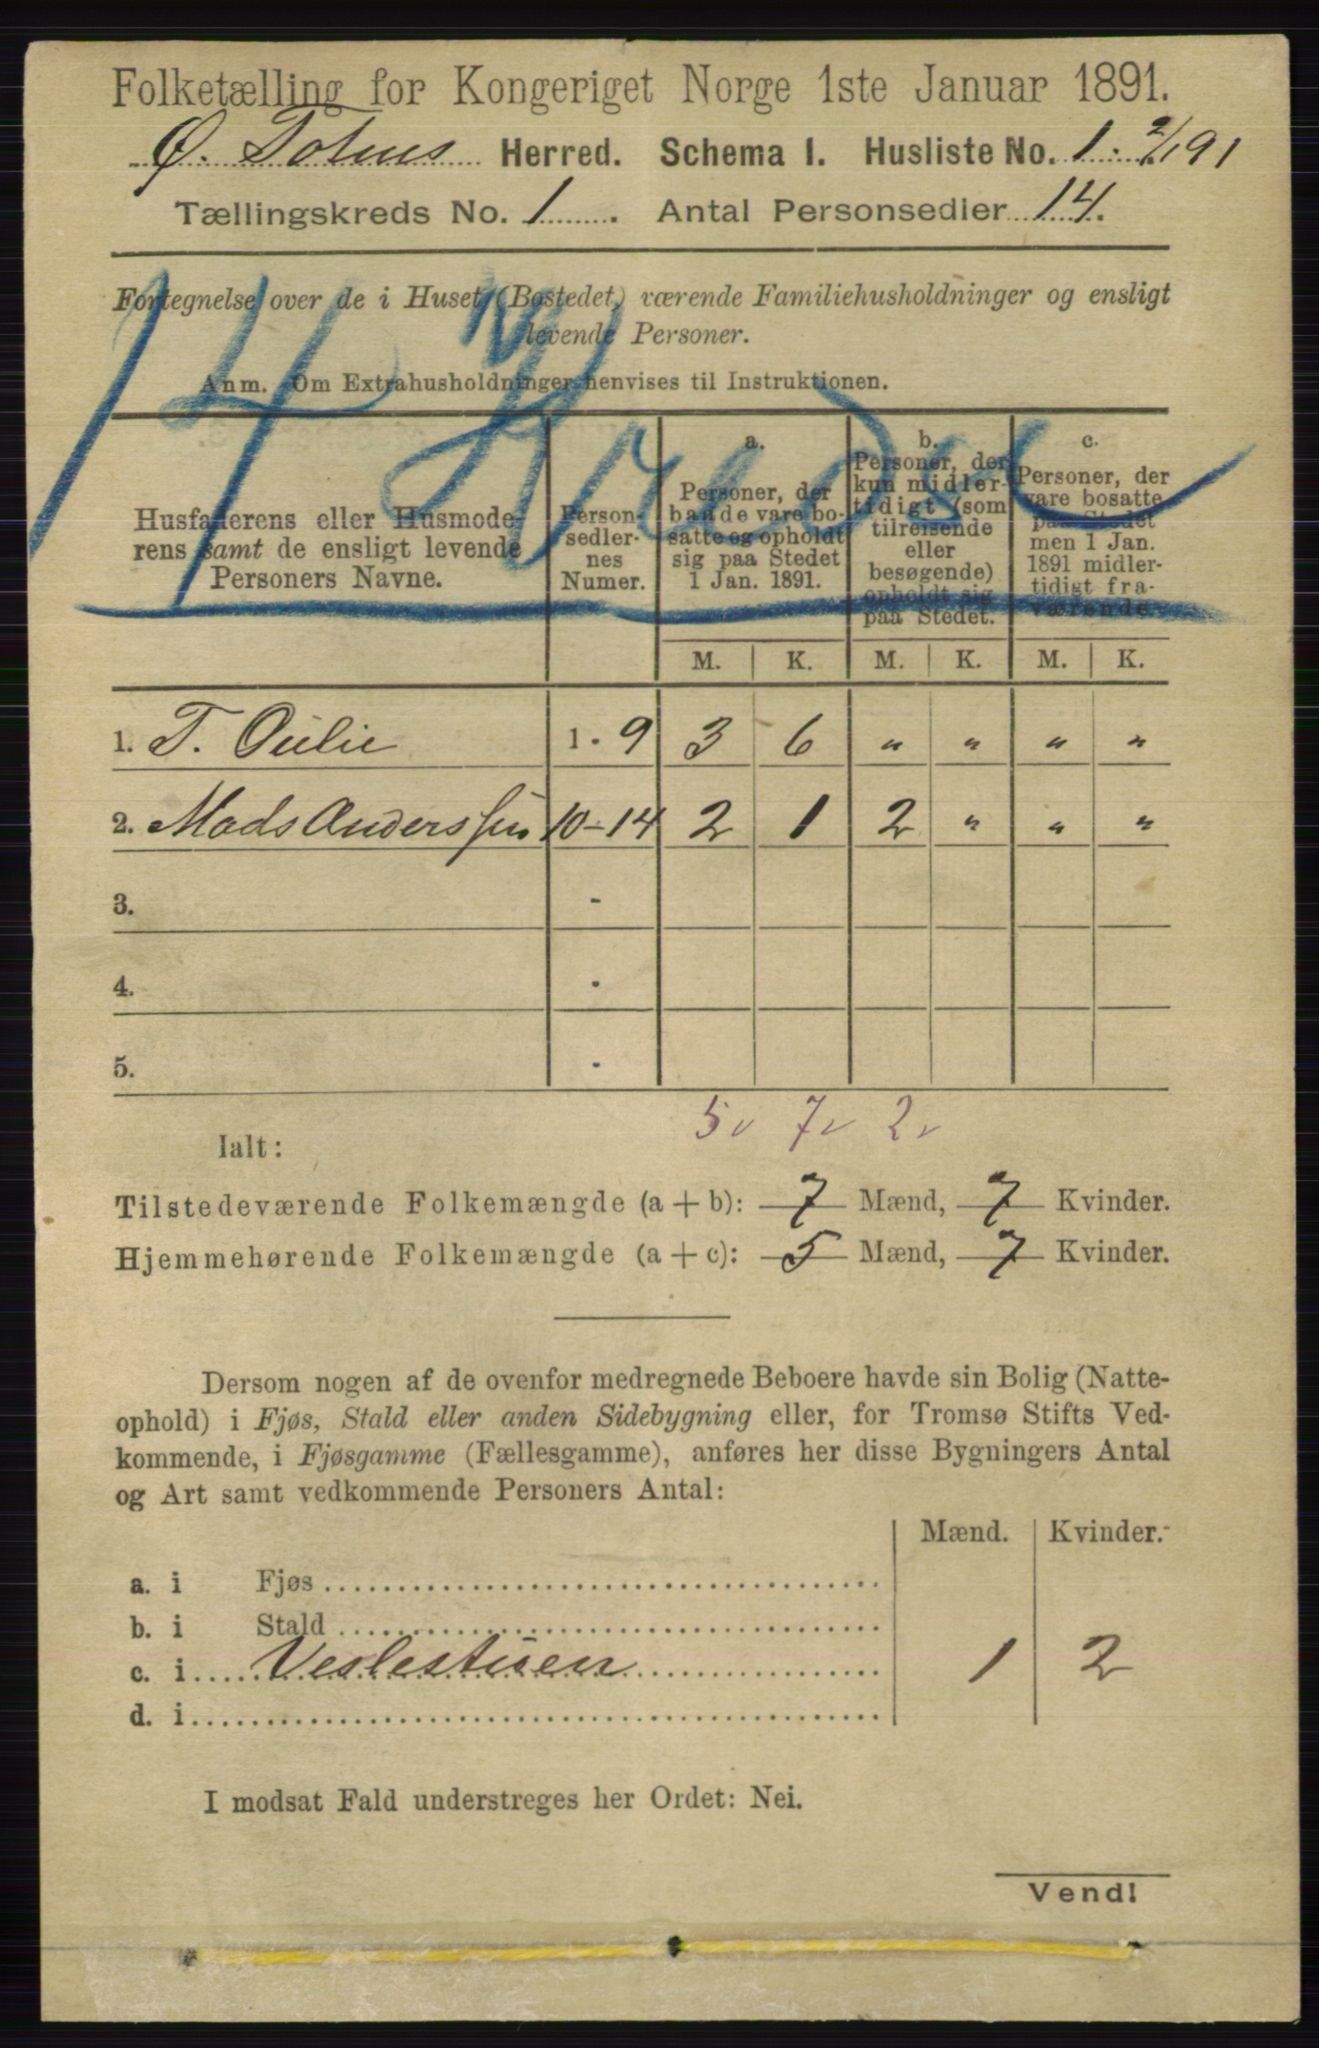 Folketælling for Kongeriget Norge 1ste Januar 1891.
Ø. Totens Herred. Schema I. Husliste No. 1. 2/1 91
Tællingskreds No. 1. Antal Personsedler 14.
Fortegnelse over de i Huset (Bostedet) værende Familiehusholdninger og ensligt
levende Personer.
Anm. Om Extrahusholdninger henvises til Instruktionen.
14 Kreds
Husfaderens eller Husmode-
rens samt de ensligt levende
Personers Navne.
Person-
sedler-
nes
Numer.
a.
Personer, der
baade vare bo-
satte og opholdt
sig paa Stedet
1 Jan. 1891.
b.
Personer, der
kun midler-
tidigt (som
tilreisende
eller
besøgende)
opholdt sig
paa Stedet.
c.
Personer, der
vare bosatte
paa Stedet
men 1 Jan.
1891 midler-
tidigt fra-
værende.
M. K. M. K. M. K.
1. T. Oulie 1 - 9 3 6 „ „ „ „
2. Mads Anderssen 10 - 14 2 1 2 „ „ „
3. -
4. -
5. -
5 v 7 v 2 v
Ialt:
Tilstedeværende Folkemængde (a + b): 7 Mænd, 7 Kvinder.
Hjemmehørende Folkemængde (a + c): 5 Mænd, 7 Kvinder.
Dersom nogen af de ovenfor medregnede Beboere havde sin Bolig (Natte-
ophold) i Fjøs, Stald eller anden Sidebygning eller, for Tromsø Stifts Ved-
kommende, i Fjøsgamme (Fællesgamme), anføres her disse Bygningers Antal
og Art samt vedkommende Personers Antal:
Mænd. Kvinder.
a. i Fjøs
b. i Stald
c. i Veslestuen 1 2
d. i
I modsat Fald understreges her Ordet: Nei.
Vend!